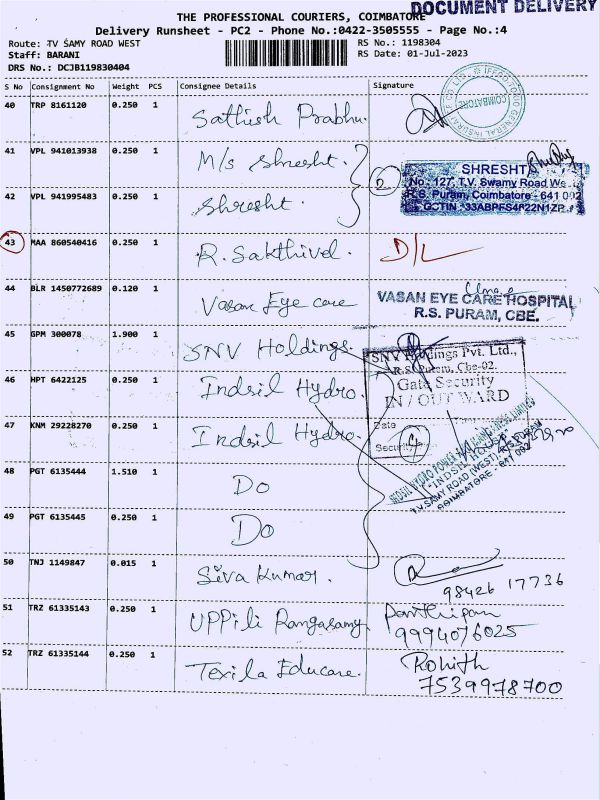 DOCUMENT DELIVERY
THE PROFESSIONAL COURIERS, COIMBATORE
Delivery Runsheet - PC2 - Phone No.:0422-3505555 - Page No.:4
Route: TV SAMY ROAD WEST
RS No.: 1198304
Staff: BARANI
RS Date: 01-Jul-2023
DRS No.: DCJB119830404
S No Consignment No Weight PCS Consignee Details Signature
40 TRP 8161120 0.250 1 Sathish Prabhu.
COIMBATORE
41 VPL 941013938 0.250 1 M/s Shresht.
SHRESHT
No: 127, T.V. Swamy Road We
R.S. Puram, Coimbatore - 641 002
GSTIN : 33ABPFS4822N1ZP
42 VPL 941995483 0.250 1 Shresht.
43 MAA 860540416 0.250 1 R. Sakthivel. D/L
44 BLR 1450772689 0.120 1 Vasan Eye care
VASAN EYE CARE HOSPITAL
R.S. PURAM, CBE.
45 GPM 300078 1.900 1 SNV Holdings.
SNV Holdings Pvt. Ltd.,
R.S. Puram, Cbe-02.
Gate Security
IN / OUT WARD
Date
Security
46 HPT 6422125 0.250 1 Indsil Hydro.
47 KNM 29228270 0.250 1 Indsil Hydro.
"INDSIL HOUSE"
T.V. SAMY ROAD (WEST), R.S. PURAM
COIMBATORE - 641 002
48 PGT 6135444 1.510 1 Do
49 PGT 6135445 0.250 1 Do
50 TNJ 1149847 0.015 1 Siva Kumar.
98426 17736
51 TRZ 61335143 0.250 1 UPPili Rangasamy.
9994076025
52 TRZ 61335144 0.250 1 Texila Educare. Rohith
7539978700